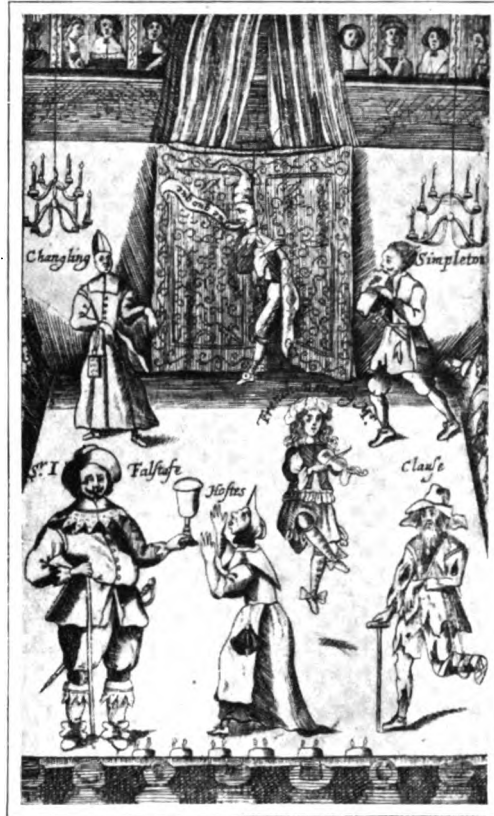 Changling
Simpleton
Sr I
Falstafe
Hostes
Clause